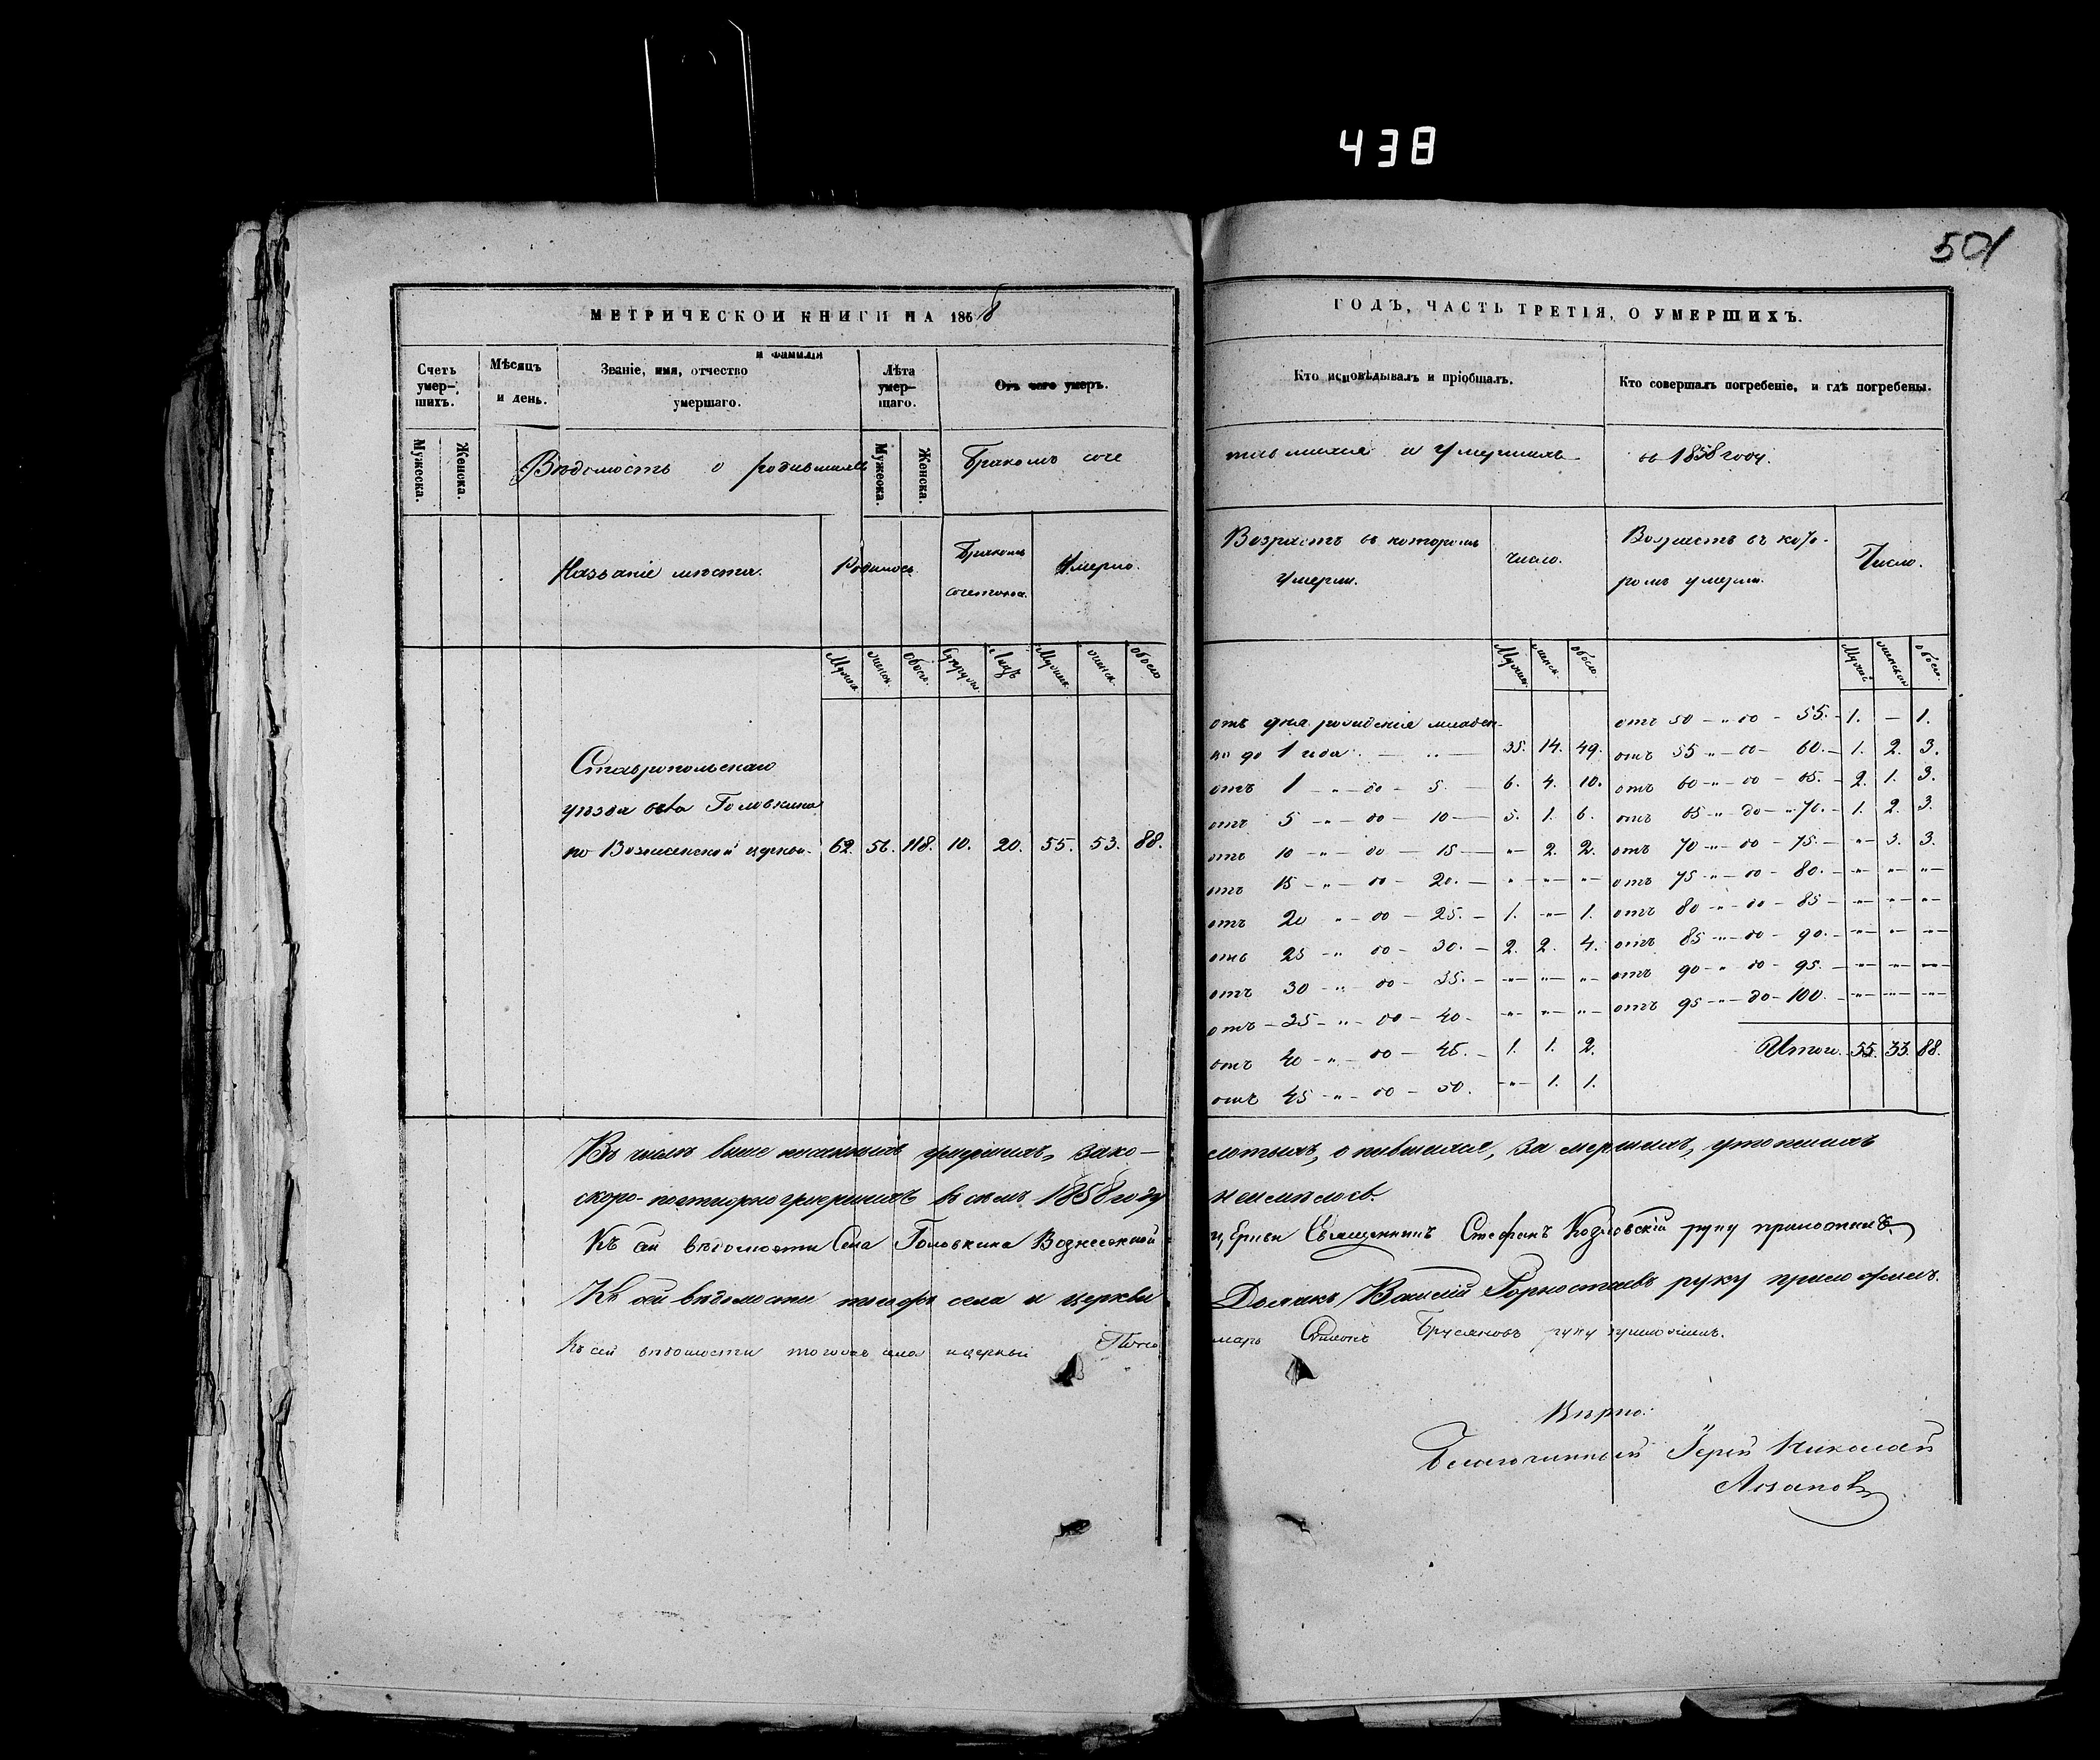 438
501
МЕТРИЧЕСКОЙ КНИГИ НА 1858
ГОДЪ, ЧАСТЬ ТРЕТІЯ, О УМЕРШИХЪ.
Счетъ умер-шихъ.
Мѣсяцъ и день.
Званіе, имя, отчество и фамилія умершаго.
Лѣта умер-шаго.
Отъ чего умеръ.
Кто исповѣдывалъ и пріобщалъ.
Кто совершалъ погребеніе, и гдѣ погребены.
Мужеска. Женска. Мужеска. Женска.
Вѣдомость о родившихся Бракомъ соче
тавшихся и Умершихъ въ 1858 году.
Названіе мѣста. Родилось. Бракомъ сочеталось. Умерло.
Возрастъ въ которомъ умерли. Число. Возрастъ въ кото-ромъ умерли. Число.
Ставропольскаго
уѣзда села Головкина
по Вознесенской церкви. 62. 56. 118. 10. 20. 55. 53. 88.
отъ дня рожденія младен-
до 1 года 35. 14. 49.
отъ 1 до 5. 6. 4. 10.
отъ 5 до 10 5. 1. 6.
отъ 10 до 15 " 2. 2.
отъ 15 до 20. " " "
отъ 20 до 25. 1. " 1.
отъ 25 до 30. 2. 2. 4.
отъ 30 до 35. " " "
отъ 35 до 40 " " "
отъ 40 до 45. 1. 1. 2.
отъ 45 до 50. " 1. 1.
отъ 50 до 55. 1. — 1.
отъ 55 до 60. 1. 2. 3.
отъ 60 до 65. 2. 1. 3.
отъ 65 до 70. 1. 2. 3.
отъ 70 до 75. " 3. 3.
отъ 75 до 80. " " "
отъ 80 до 85 " " "
отъ 85 до 90. " " "
отъ 90 до 95. " " "
отъ 95 до 100. " " "
Итого. 55. 33. 88.
Въ числѣ выше писанныхъ умершихъ, зако-
лотыхъ, опившихся, замершихъ, утопшихъ
скоро-постижно умершихъ въ семъ 1858 году
неимѣлось.
Къ сей вѣдомости Села Головкина Вознесенской
церкви Священникъ Стефанъ Козловскій руку приложилъ.
Къ сей вѣдомости тогожъ села и церкви
Дьячекъ Василій Горностаевъ руку приложилъ.
Къ сей вѣдомости тогожъ села и церкви Поно
марь Симонъ Брусяновъ руку приложилъ.
Вѣрно:
Благочинный Іерей Николай